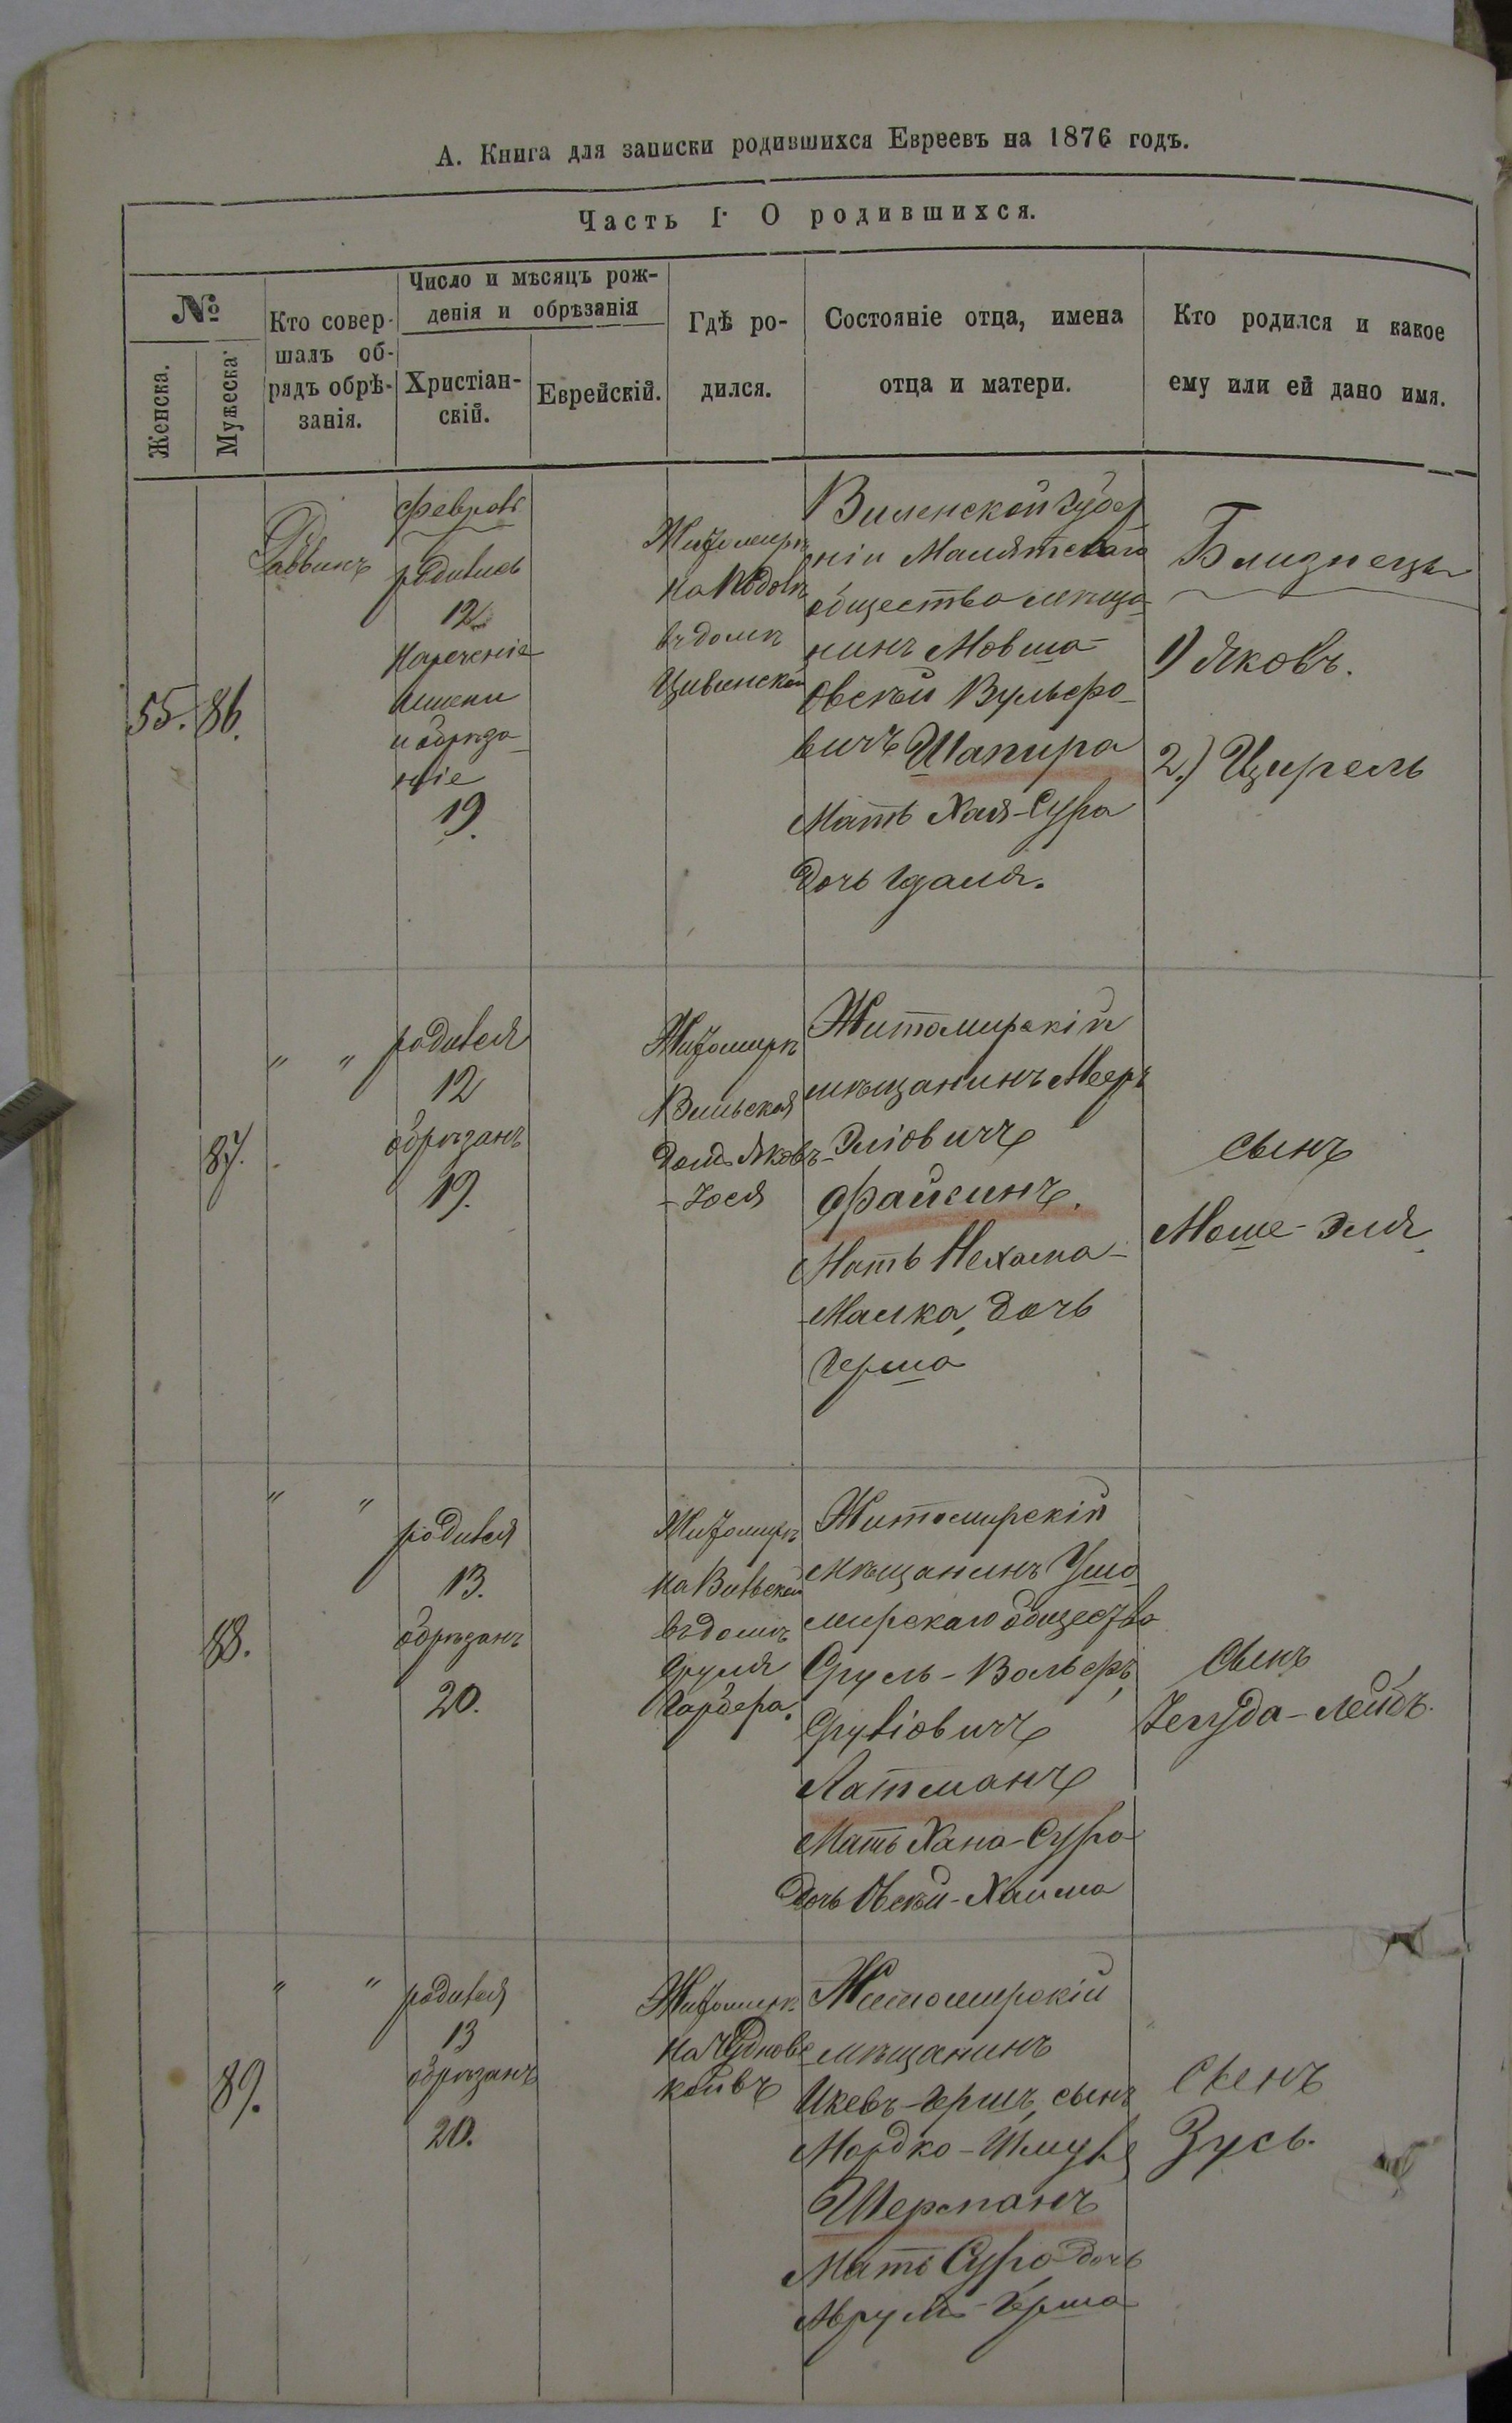 А. Книга для записки родившихся Евреевъ на 1876 годъ.
Часть I О родившихся.
№
Женска.
Мужеска
Кто совер-
шалъ об-
рядъ обрѣ-
занія.
Число и мѣсяцъ рож-
денія и обрѣзанія
Христіан-
скій.
Еврейскій.
Гдѣ ро-
дился.
Состояніе отца, имена
отца и матери.
Кто родился и какое
ему или ей дано имя.
55. 86.
Раввинъ
родились
12
Нареченіе
имени
и обрѣза-
ніе
19.
Житомирѣ
въ домѣ
Виленской губер
ніи
общества мѣща-
нинъ Мовша-
Овсѣй Вульфо-
вичъ Шапира
Мать Хая-Сура
дочь Гдаля.
Близнецы
1) Яковъ.
2) Цирель
87.
" "
родился
12
обрѣзанъ
19.
Житомирѣ
Вильская
домъ Яковъ-
-Іося
Житомирскій
мѣщанинъ Мееръ
Эліовичъ
Файсинъ.
Мать Нехама-
Малка, дочь
Герша
сынъ
Моше-Эля
88.
" "
родился
13.
обрѣзанъ
20.
Житомирѣ
на Вильской
въ домѣ
Сруля
Гарбера.
Житомирскій
мѣщанинъ Ушо
мирскаго общества
Сруль-Вольфъ
Латманъ
Мать Хана-Сура
дочь Овсѣй-Хаима
Сынъ
Іегуда-Лейбъ.
89.
" "
родился
13
обрѣзанъ
20.
Житомирѣ
на Чуднов
Житомирскій
мѣщанинъ
Ицекъ-Гершъ, сынъ
Мордко-Шмуля
Шерманъ
Мать Сура дочь
Аврумъ-Герша
Сынъ
Зусь.